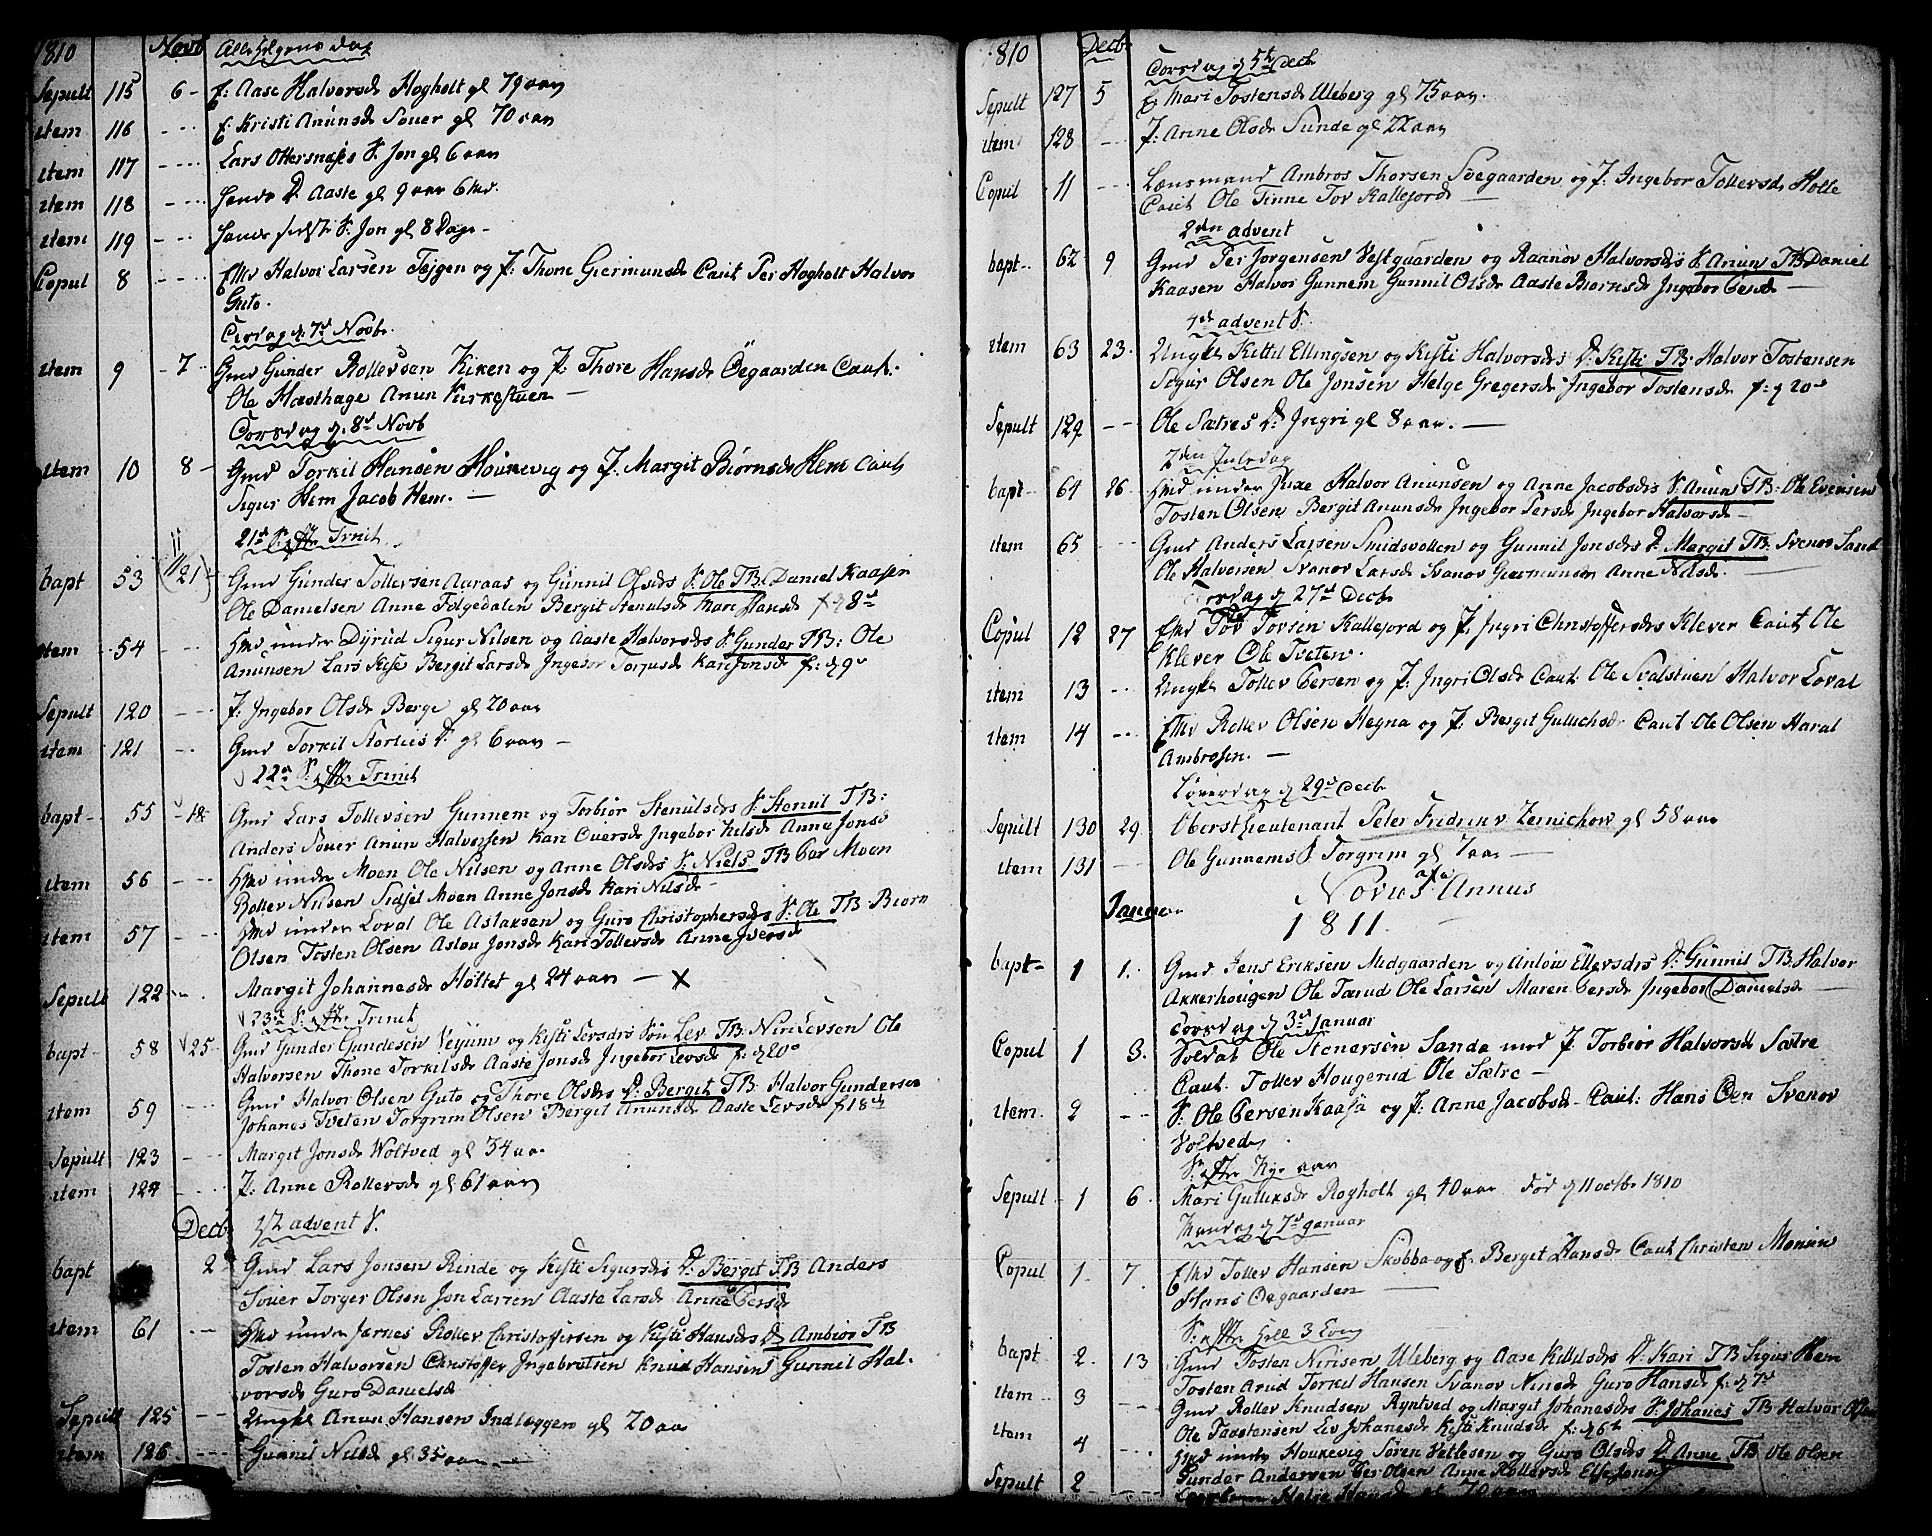 1810 Novb Allehelgens dag
Sepult 115 6 - E: Aase Halvorsd: Hogholt gl 79 aar
item 116 - - - E: Kristi Anunsd Souer gl 70 aar
item 117 - - - Lars Ottersnæses S. Jon gl 6 aar
item 118 - - - D: Aaste gl 9 aar 6 Md.
item 119 - - - S. Jon gl 8 Dage -
Copul 8 - - - Ekr Halvor Larsen Tejgen og P: Thone Giermunsd Caut Per Hogholt Halvor
Guto.
d. 7d Novb.
item 9 - 7 Gmd Gunder Rollevsen Kiken og P: Thore Hansd Øegaarden Caut:
Ole Hæsthage Anun Kirkestuen -
Torsdag d. 8d Novb
item 10 8 - Gmd Torkil Hansen Houkevig og P. Margit Biørnsd Hem Caut
Sigur Hem Jacob Hem. -
21d S. efter Trinit
bapt 53 11(21) Gmd Gundes Tollevsen Aaraas og Gunnil Olsdrs S. Ole TB: Daniel Kaasen
Ole Danielsen Anne Folgedalen Bergit Stenulsd Mari Hansd f. d 8d
item 54 - - - Hmd under Dyrud Sigur Nilsen og Aaste Halvorsdrs S. Gunder TB: Ole
Anunsen Lars Kise Bergit Larsd Ingebor Torjusd Kari Jonsd f: d 9d
Sepult 120 - - - P: Ingebor Olsd Berge gl 20 aar
item 121 - - Gmd Torkil D. gl 6 aar -
22d S. efter Trinit
bapt - 55 - 18 Gmd Lars Tollevsen Gunnem og Torbiør Stenulsdrs S. Stenul TB:
Anders Souer Anun Halvorsen Kari Eversd Ingebor Anne Jonsd
item 56 - - - Hmd under Moen Ole Nilsen og Anne Olsdrs S. Niels TB Per Moen
Rollev Nilsen Sidsel Moen Anne Jonsd Kari Nilsd -
item 57 - - - Hmd under Loval Ole Aslaksen og Guro Christophersdrs S. Ole TB: Biørn
Olsen Tosten Olsen Aslou Jonsd Kari Tollevsd Anne Iversd
Sepult 122 - - Margit Johannesd Holtet gl 24 aar - X
23d S. efter Trinit
bapt - 58 25 - Gmd Gunder Gundesen Vejum og Kisti Levsdrs Søn Lev TB: Niri Levsen Ole
Halvorsen Thone Torkilsd Aaste Jonsd Ingebor Levsd f. d 20d
item 59 - - - Gmd Halvor Olsen Guto og Thore Olsdrs D: Bergit TB: Halvor Gundersen
Johanes Tveten Torgrim Olsen Bergit Anunsd Aaste Levsd f 18d
Sepult 123 - - - Margit Jonsd Woltved gl 34 aar
item 124 - - - P: Anne Rollevsd gl 61 aar
Decb 1ste advent S.
bapt 2 Gmd Lars Jonsen Rinde og Kisti Sigursdrs D: Bergit TB Anders
Souer Torger Olsen Jon Larsen Aaste Larsd Anne Persd
item 61 - - Hmd under Jernes Rollev Christoffersen og Kisti Hansdrs D. Ambior TB
Tosten Halvorsen Christoffer Ingebretsen Knud Hansen Gunnil Hal-
vorsd Guro Danielsd
Sepult 125 - - Ungkl Anun Hansen Indlæggen gl 20 aar
item 126 - - - Gunnil Nilsd gl 35 aar - -
1810 Decb Torsdag d 5te Decb
Sepult 127 5 E: Mari Tostensd Uleberg gl 75 aar.
item 128 - - P. Anne Olsd Sunde gl 22 aar
Copul 11 - - - Lænsmand Ambros Thorsen Soegaarden og P: Ingebor Tollevsd Holte
Caut Ole Tinne Tov Kallejord -
2den advent
bapt - 62 9 Gmd Per Jørgensen Vestgaarden og Raanov Halvorsdrs S. Anun TB Daniel
Kaasen Halvor Gunnem Gunnil Olsd Aaste Biørnsd Ingebor Persd -
4de advent S.
item 63 23. Ungkl Kittil Ellingsen og Kisti Halvorsdrs D: Kisti TB: Halvor Tostensen
Sigur Olsen Ole Jonsen Helge Gregersd Ingebor Tostensd f: d 20d
Sepult 129 - - Ole Sætres D: Ingri gl 8 aar. -
2den Juledag
bapt - 64 26. Hmd under Juxe Halvor Anunsen og Anne Jacobsdrs S. Anun TB: Ole Evensen
Tosten Olsen Bergit Anunsd Ingebor Persd Ingebor Halvorsd -
item 65 - - - Gmd Anders Larsen Smidsvollen og Gunnil Jonsdrs D. Margit TB: Svenov Sand
Ole Halvorsen Svanov Larsd Svanov Giermunsen Anne Nilsd -
Torsdag d 27d Decb
Copul 12 27 Ekr Tov Torsen Kallejord og P. Ingri Christoffersdrs Klever Caut Ole
Klever Ole Tveten.
item 13 - - Ungkl Tollev Persen og P. Ingri Olsd Caut: Ole Svalstuen Halvor Loval
item 14 - - - Ekr Rollev Olsen Hegna og P. Bergit Gulliksd Caut Ole Olsen Haral
Ambrosen. -
Løverdag d 29d Decb
Sepult 130 29. Oberstlieutenant Peter Fredrik v Zernichow gl 58 aar
item 131 - - Ole Gunnems S. Torgrim gl 7 aar -
Novus Annus
Januar 1811.
bapt - 1 1. Gmd Jens Eriksen Midgaarden og Anlou Ellevsdrs D. Gunnil TB. Halvor
Akkerhougen Ole Tærud Ole Larsen Maren Persd Ingebor Danielsd -
Torsdag d 3d Januar
Copul 1 3. Soldat Ole Stenersen Sanda med P. Torbior Halvorsd Sætre
Caut. Tollev Hougerud Ole Sætre -
item. 2 - - S. Ole Persen Kaasa og P. Anne Jacobsd - Caut: Hans Oen Svenov
Woltved.
S. efter Nye aar
Sepult - 1 6. Mari Gulliksd Rogholt gl 40 aar Død d 11 octbr 1810
Mandag d 7d Januar
Copul 1. 7. Ekr Tollev Hansen Skobba og E Berget Hansd Caut Christen Monsen
Hans Oegaarden -
S. efter Hell 3 Kong
bapt 2. 13 Gmd Tosten Nirisen Uleberg og Aase Kittilsdrs D. Kari TB Sigur Hem
Tosten Arud Torkil Hansen Svanov Nirisd Guro Hansd f. d 7d
item 3 - - Gmd Rollev Knudsen Ryntved og Margit Johanesdrs S. Johanes TB Halvor
Ole Taastensen Liv Johanesd Kisti Knudsd f: d 6te
item 4 - - - Hmd under Houkevig Søren Vetlesen og Guro Olsdrs D. Anne TB Ole Olsen
Gunder Andersen Per Olsen Anne Rollevsd Else Jonsd
Sepult 2 - - - Hansd gl 70 aar